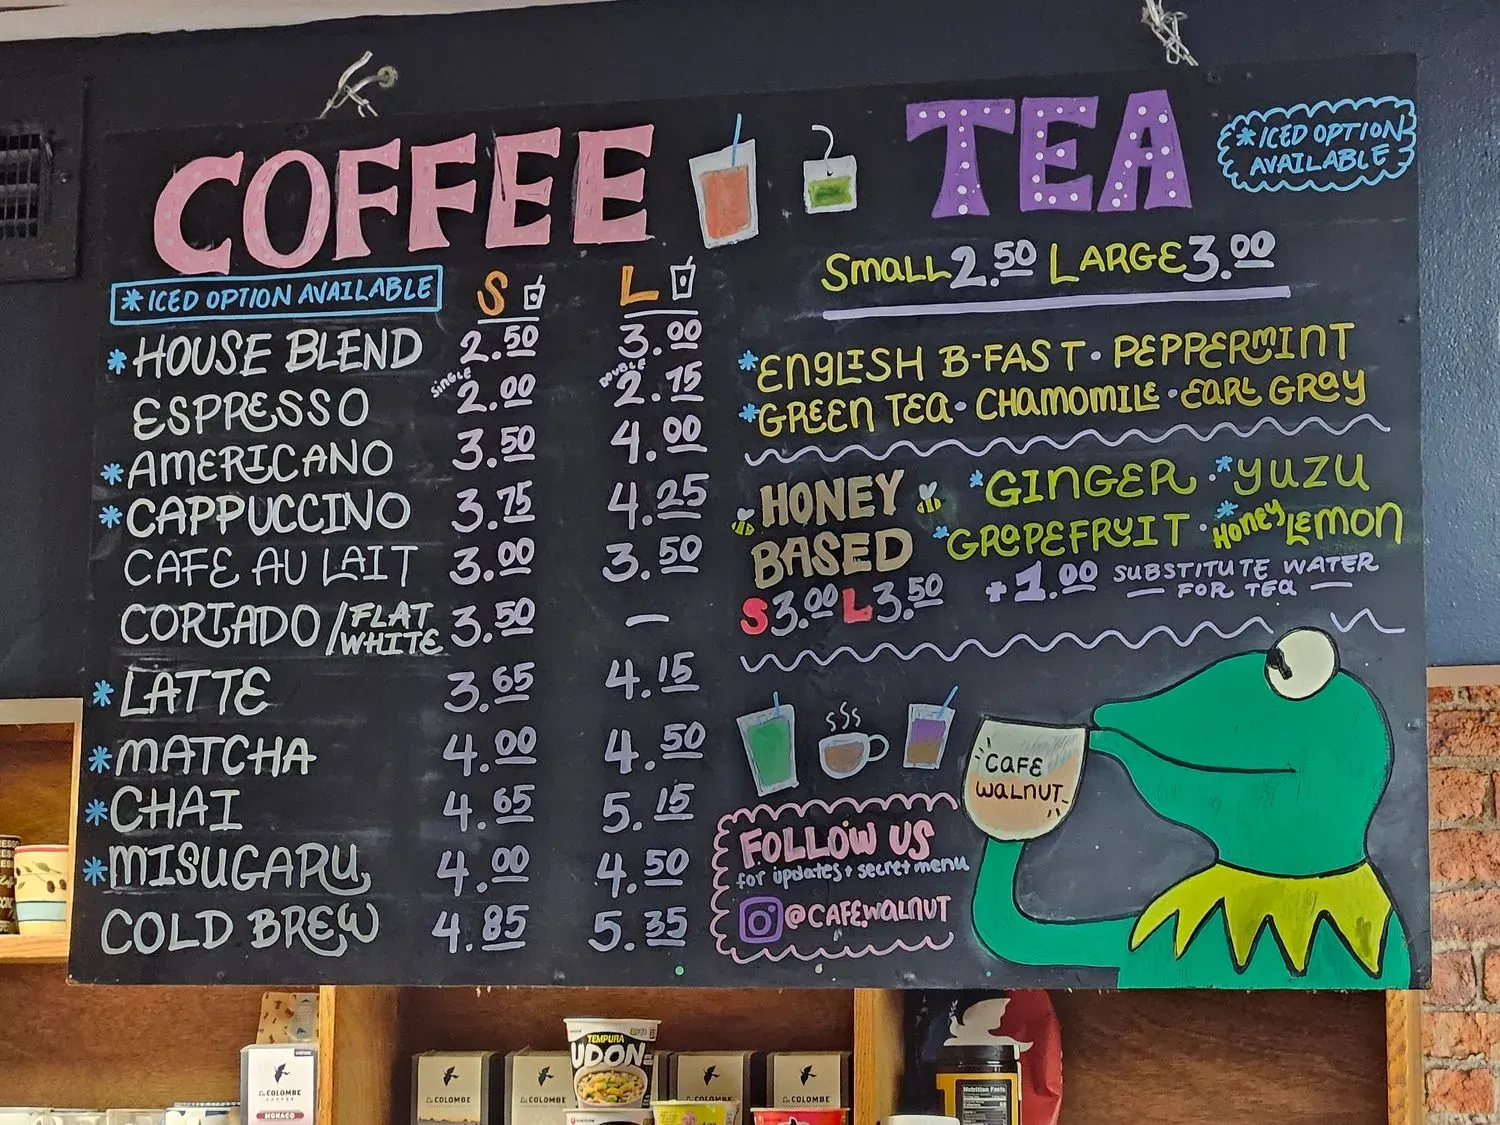 COFFEE
* ICED OPTION AVAILABLE S L
* HOUSE BLEND 2.50 3.00
ESPRESSO SINGLE 2.00 DOUBLE 2.75
* AMERICANO 3.50 4.00
* CAPPUCCINO 3.75 4.25
CAFE AU LAIT 3.00 3.50
CORTADO / FLAT WHITE 3.50 —
* LATTE 3.65 4.15
* MATCHA 4.00 4.50
* CHAI 4.65 5.15
* MISUGARU 4.00 4.50
COLD BREW 4.85 5.35
TEA
* ICED OPTION
AVAILABLE
SMALL 2.50 LARGE 3.00
* ENGLISH B-FAST • PEPPERMINT
* GREEN TEA • CHAMOMILE • EARL GRAY
HONEY
BASED
S 3.00 L 3.50
* GINGER • * YUZU
* GRAPEFRUIT • * HONEY LEMON
+ 1.00 SUBSTITUTE WATER
FOR TEA
CAFE
WALNUT
FOLLOW US
for updates + secret menu
@CAFE.WALNUT
TEMPURA
UDON
La COLOMBE
COFFEE
MONACO
La COLOMBE
La COLOMBE
La COLOMBE
La COLOMBE
Nutrition Facts